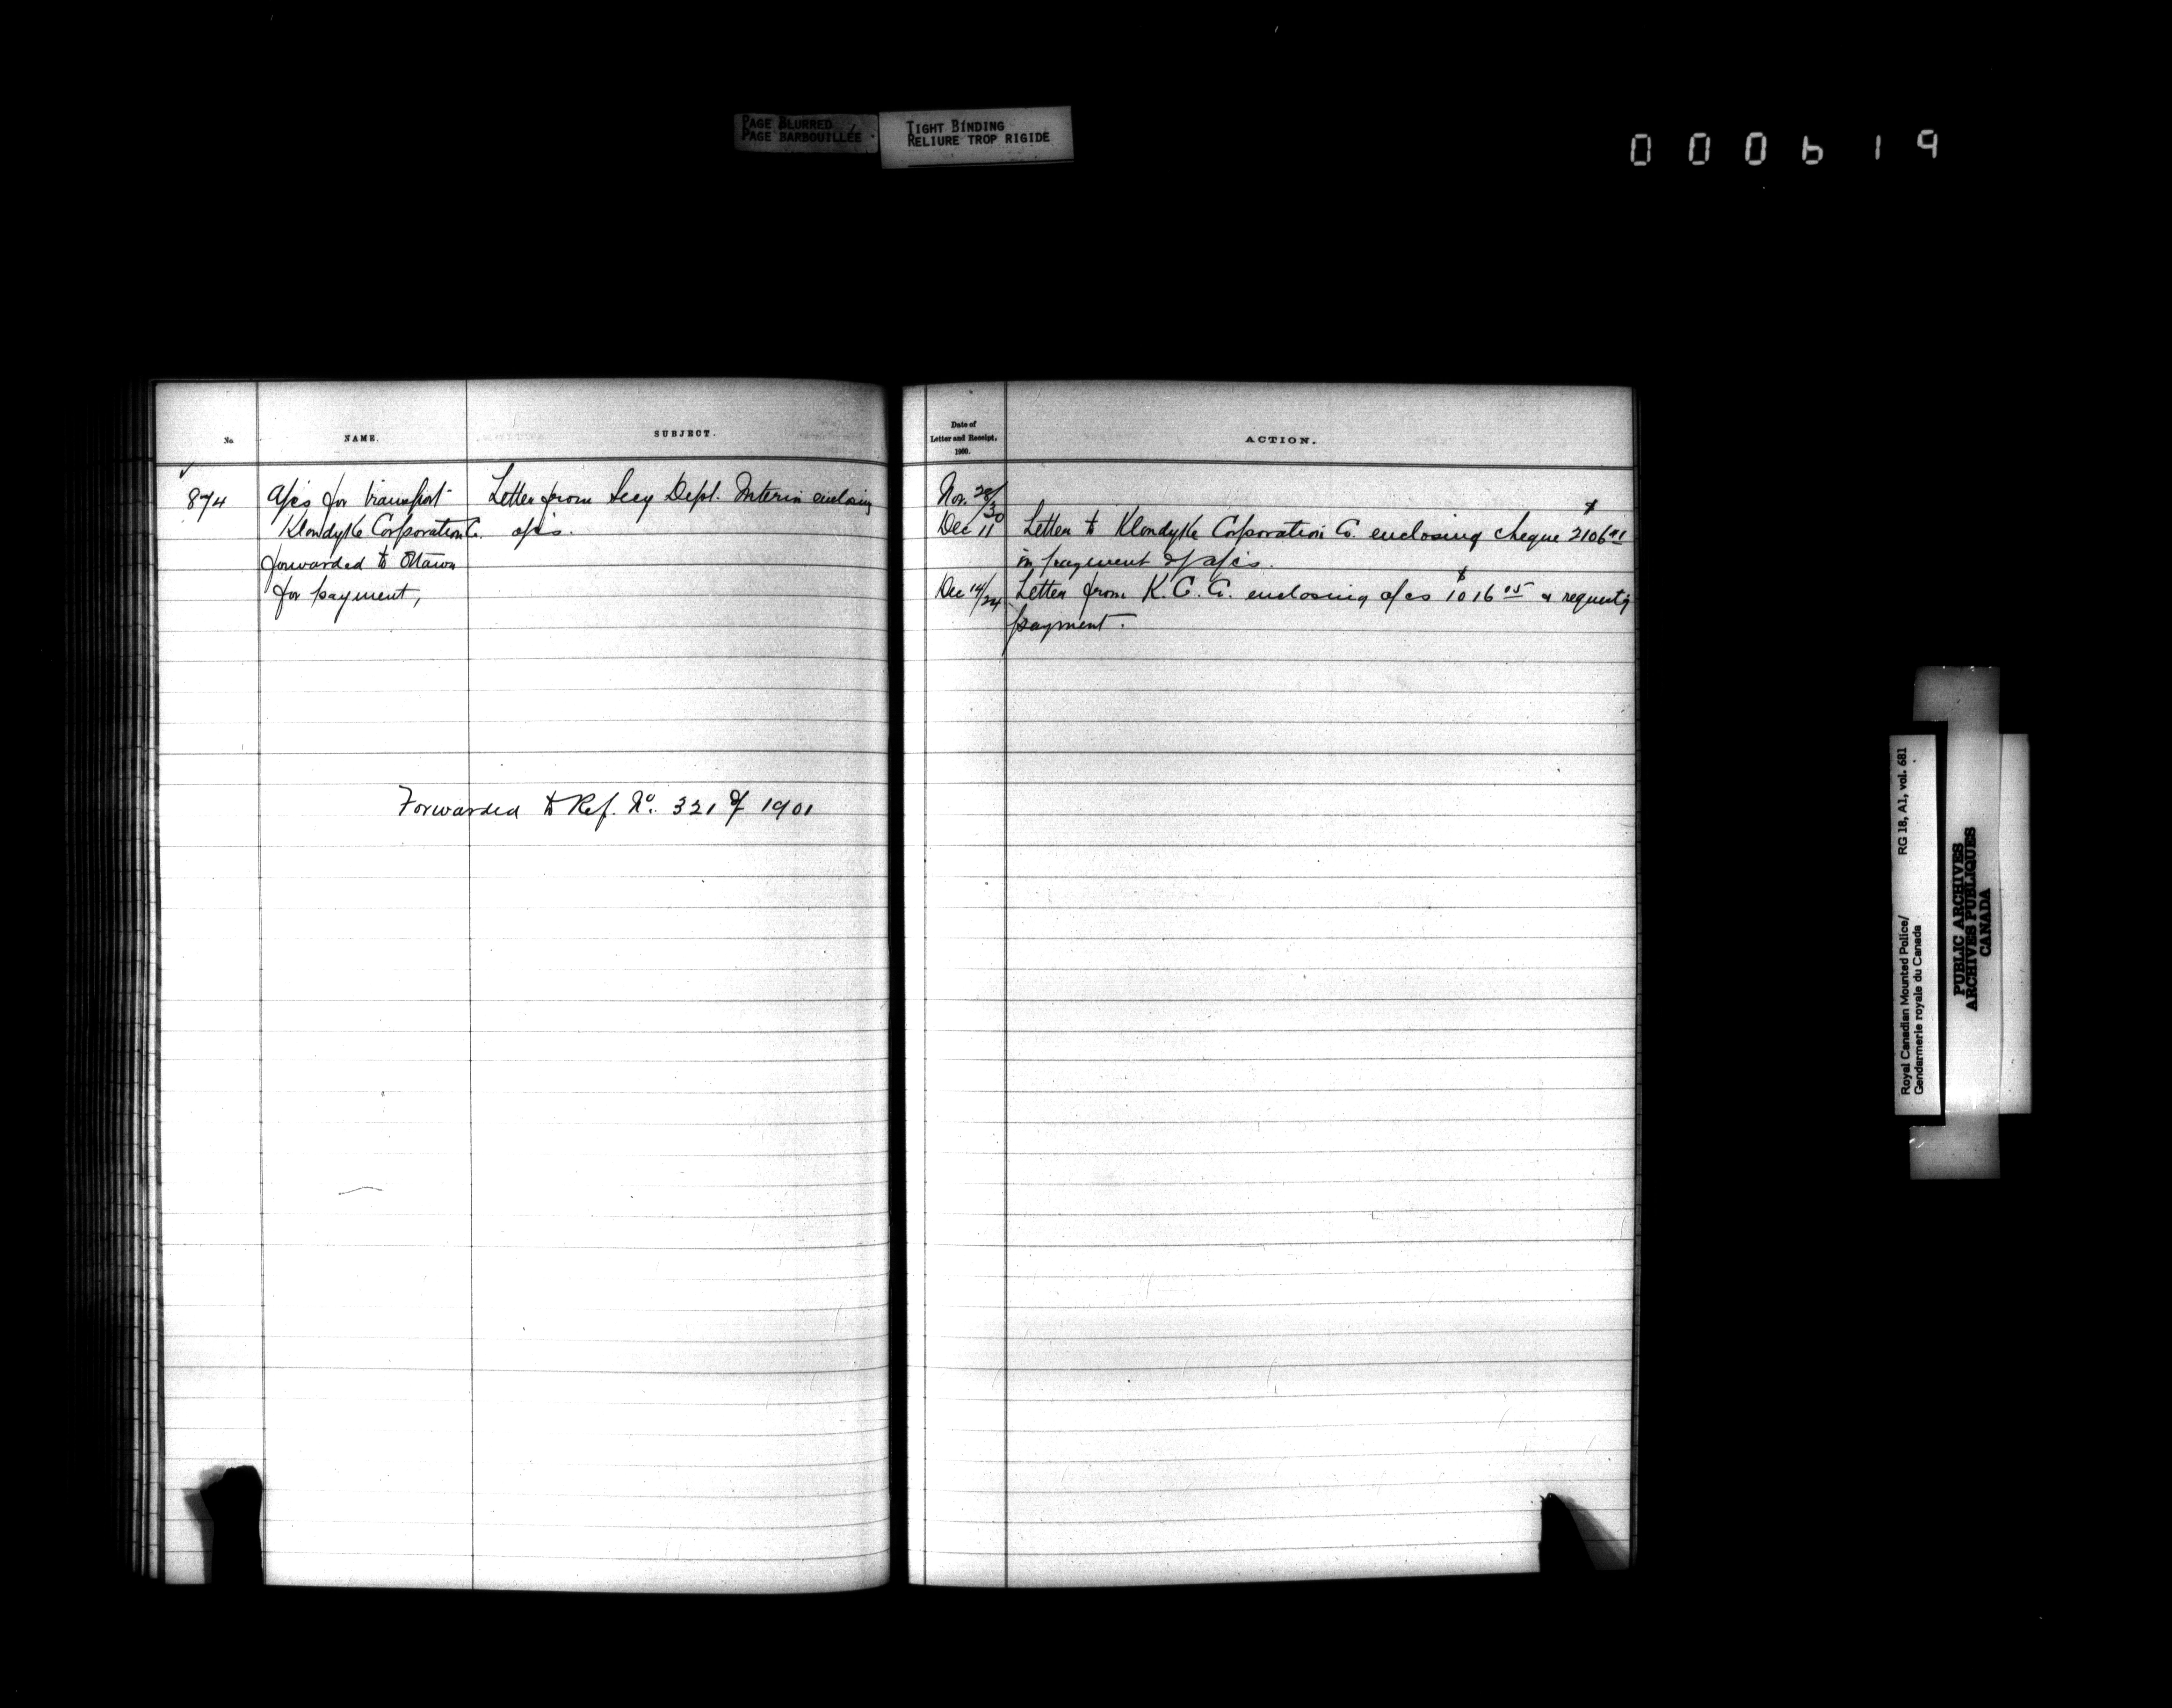 PAGE BLURRED
PAGE BARBOUILLÉE
TIGHT BINDING
RELIURE TROP RIGIDE
000619
No.
NAME.
SUBJECT.
Date of
Letter and Receipt,
1900.
ACTION.
874
a/cs for transport
Klondyke Corporation Co.
forwarded to Ottawa
for payment,
Letter from Secy Dept. Interior enclosing
a/cs.
Nov. 28/30
Dec 11 Letter to Klondyke Corporation Co. enclosing cheque $2106
in payment of a/cs.
Dec 14/24 Letter from K. C. Co. enclosing a/cs $1016 05 & requestg
payment.
Forwarded to Ref. No. 321 of 1901
Royal Canadian Mounted Police/ RG 18, A1, vol. 681
Gendarmerie royale du Canada
PUBLIC ARCHIVES
ARCHIVES PUBLIQUES
CANADA